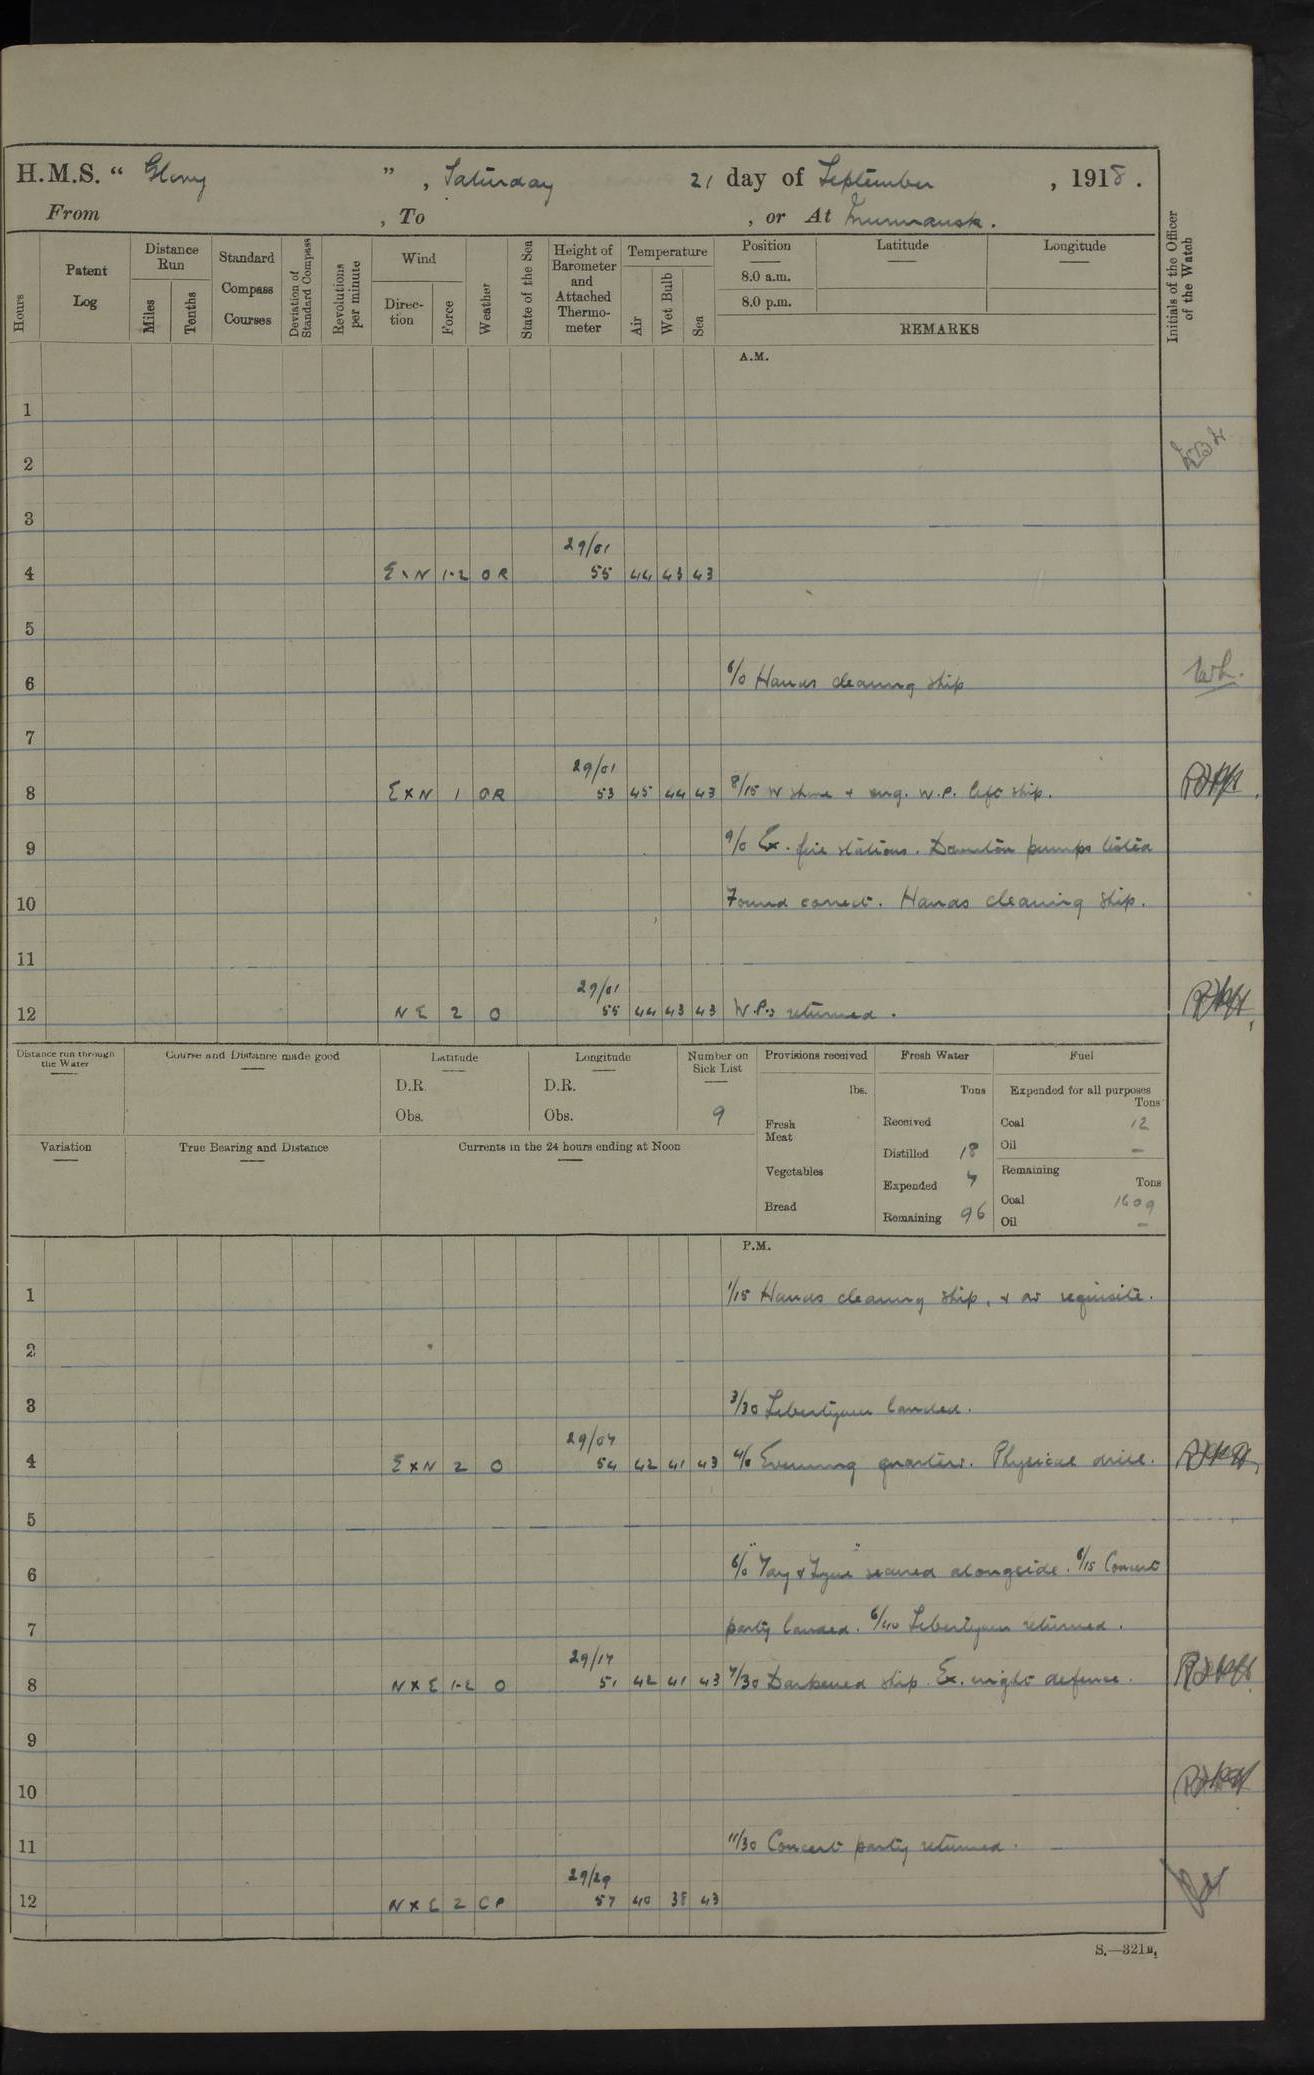 H.M.S. “ Glory ” , Saturday 21 day of September , 1918 .
From , To , or At Murmansk .
Hours
Patent Log
Distance Run
Miles
Tenths
Standard Compass Courses
Deviation of Standard Compass
Revolutions per minute
Wind
Direc-tion
Force
Weather
State of the Sea
Height of Barometer and Attached Thermo-meter
Temperature
Air
Wet Bulb
Sea
Position
8.0 a.m.
8.0 p.m.
Latitude
Longitude
REMARKS
Initials of the Officer of the Watch
A.M.
1
2
3
29/01
4 E x N 1-2 O R 55 44 43 43
5
6 6/0 Hands cleaning ship
7
29/01
8 E x N 1 O R 53 45 45 43 8/15 W shore & eng. W.P. left ship.
9 9/0 Ex. fire stations. Downton pumps tested
10 Found correct. Hands cleaning ship.
11
29/01
12 N E 2 O 55 44 43 43 W.P.s returned .
Distance run through the Water
Course and Distance made good
Latitude
D.R
Obs.
Longitude
D.R.
Obs.
Number on Sick List
9
Provisions received
lbs.
Fresh Meat
Vegetables
Bread
Fresh Water
Tons
Received
Distilled 18
Expended 7
Remaining 96
Fuel
Expended for all purposes
Tons
Coal 12
Oil –
Remaining
Tons
Coal 1609
Oil –
Variation
True Bearing and Distance
Currents in the 24 hours ending at Noon
P.M.
1 1/15 Hands cleaning ship, & as requisite.
2
3 3/30 Libertymen landed.
29/07
4 E x N 2 O 54 42 41 43 4/0 Evening quarters. Physical drill.
5
6 6/0 "Tay & Tyne" secured alongside. 6/15 Concert
7 party landed. 6/40 Libertymen returned .
29/17
8 N x E 1-2 O 51 42 41 43 7/30 Darkened ship. Ex. night defence .
9
10
11 11/30 Concert party returned .
29/29
12 N x E 2 C P 57 40 38 43
S.—321B.